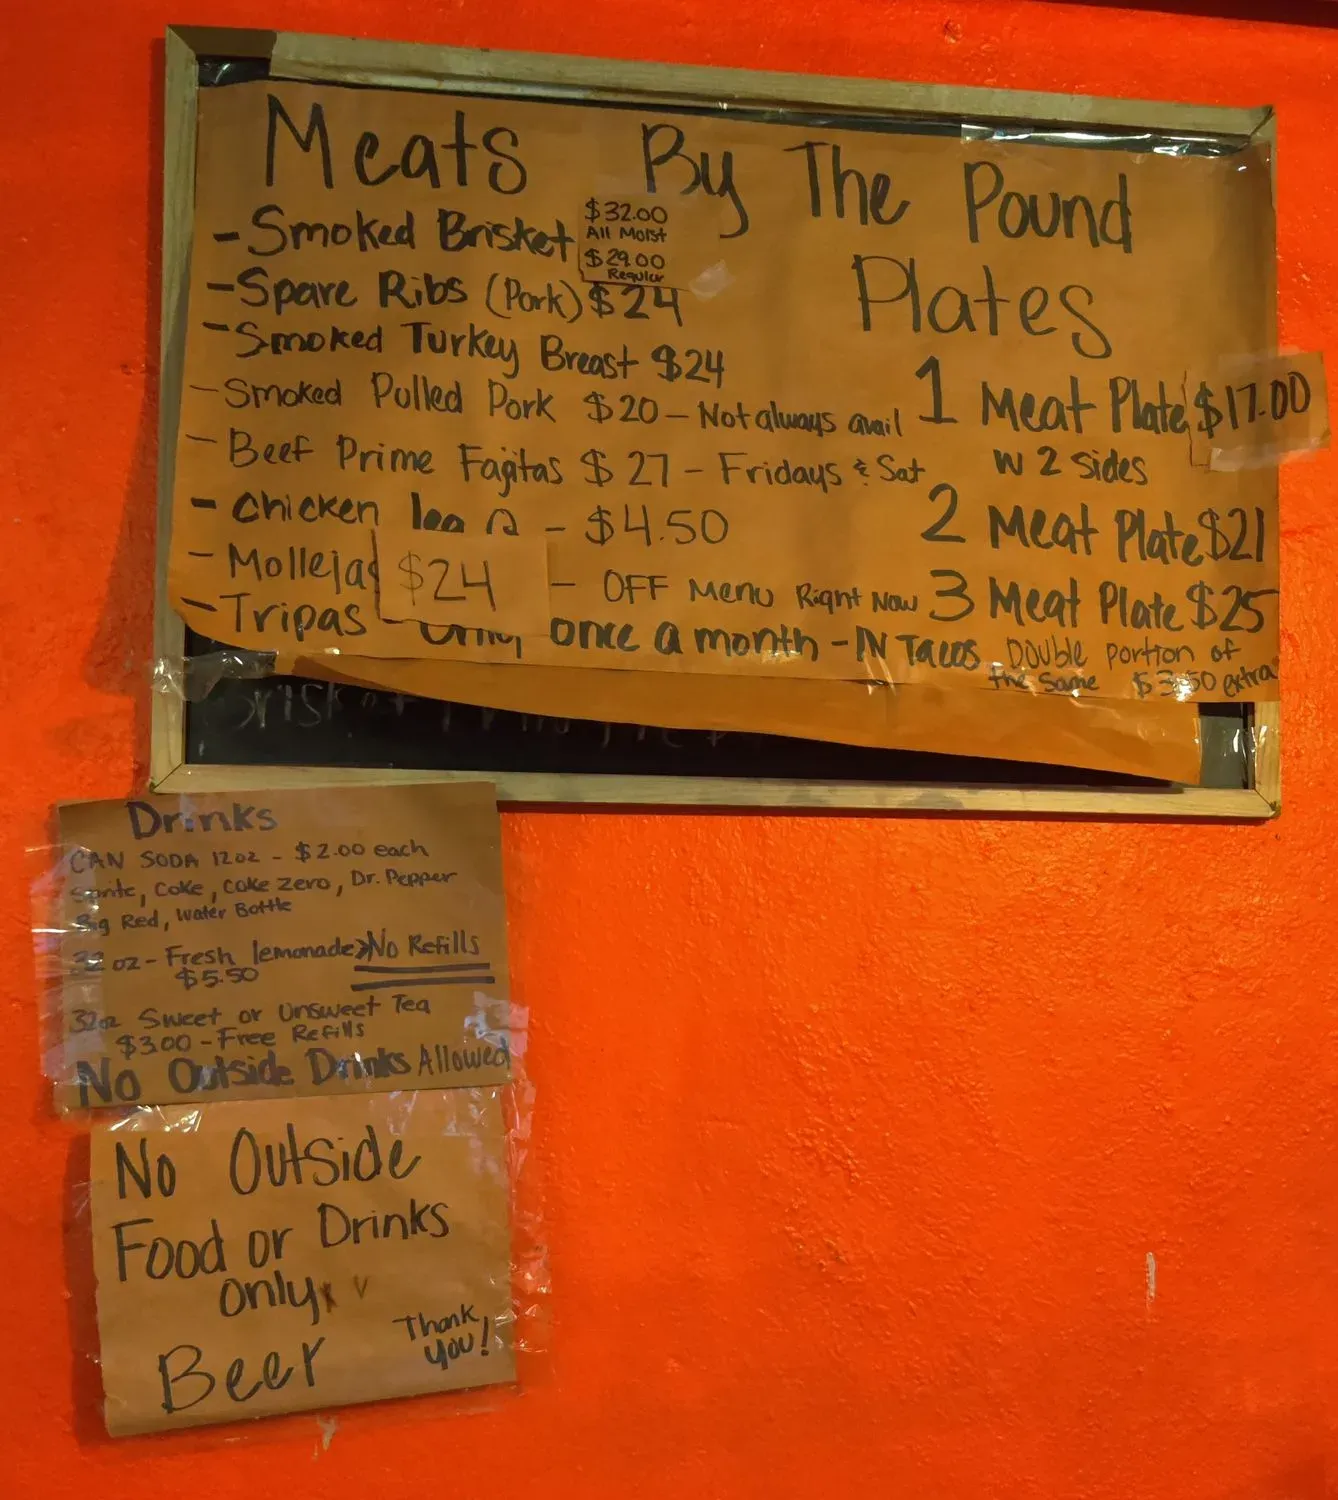 Meats By The Pound
- Smoked Brisket $32.00
All Moist
$29.00
Regular
- Spare Ribs (Pork) $24
- Smoked Turkey Breast $24
- Smoked Pulled Pork $20 - Not always avail
- Beef Prime Fajitas $27 - Fridays & Sat
- Chicken leg - $4.50
- Mollejas $24 - OFF Menu Right Now
- Tripas - Only once a month - IN Tacos
Plates
1 Meat Plate $17.00
w 2 sides
2 Meat Plate $21
3 Meat Plate $25
Double portion of
the same $3.50 extra
Drinks
CAN SODA 12oz - $2.00 each
Sprite, Coke, Coke Zero, Dr. Pepper
Big Red, Water Bottle
32 oz - Fresh lemonade > No Refills
$5.50
32oz Sweet or Unsweet Tea
$3.00 - Free Refills
No Outside Drinks Allowed
No Outside
Food or Drinks
only
Beer
Thank
you!